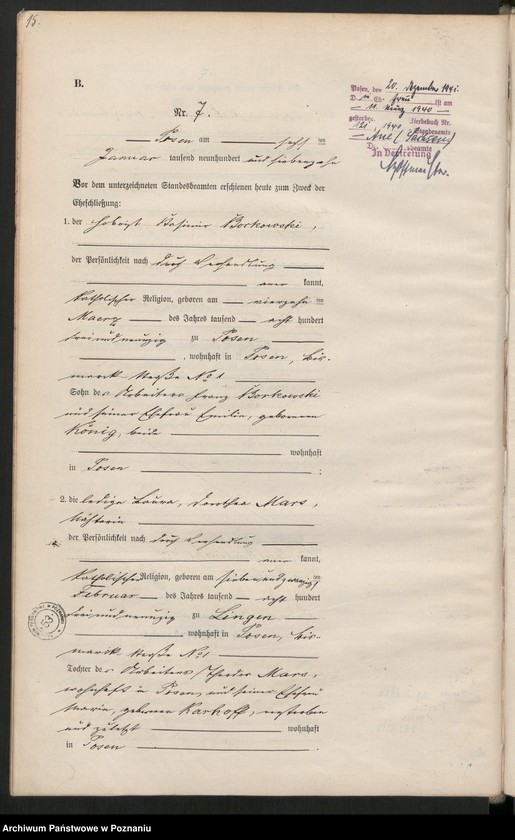 15.
B.
Nr. 7.
Posen am sechs ten
Januar tausend neunhundert und siebenzehn
Vor dem unterzeichneten Standesbeamten erschienen heute zum Zweck der
Eheschließung:
1. der Hoboist Kasimir Borkowski,
der Persönlichkeit nach durch Verhandlung
aner kannt,
katholischer Religion, geboren am vierzehn ten
Maerz des Jahres tausend acht hundert
dreiundneunzig zu Posen
, wohnhaft in Posen, Bis-
marck Straße No 1
Sohn des Arbeiters Franz Borkowski
und seiner Ehefrau Emilie, geborenen
König, beide
wohnhaft
in Posen ;
2. die ledige Laura, Dorothea Mars,
Nähterin
der Persönlichkeit nach durch Verhandlung
aner kannt,
katholischer Religion, geboren am siebenundzwanzig ten
Februar des Jahres tausend acht hundert
dreiundneunzig zu Lingen
wohnhaft in Posen, Bis-
marck Straße No 1
Tochter des Arbeiters Theodor Mars,
wohnhaft in Posen, und seiner Ehefrau
Maria, geborenen Karhoff, verstorben
und zuletzt wohnhaft
in Posen .
Posen, den 20. Dezember 1941.
Ehefrau ist am
11. März 1940
gestorben. Sterbebuch Nr.
121/1940 Standesamts
Aue (Sachsen)
In Vertretung
53
Archiwum Państwowe w Poznaniu